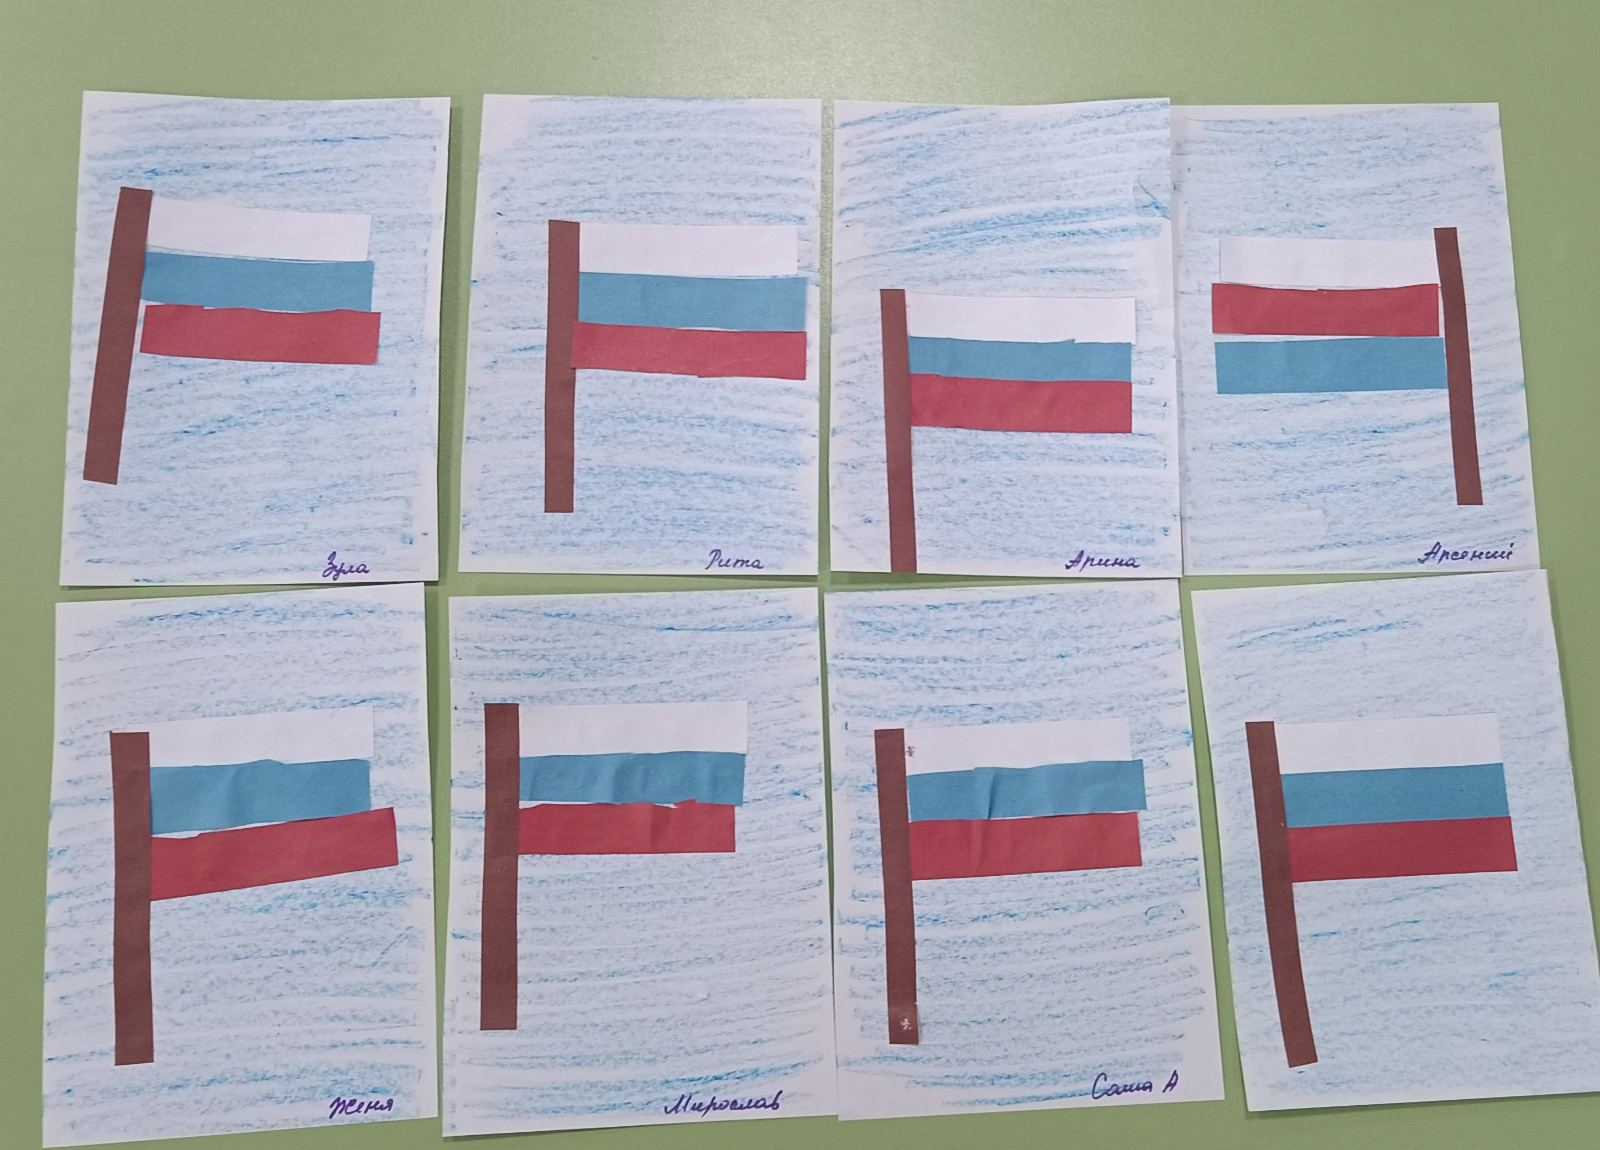 Зула
Рита
Арина
Арсений
Женя
Мирослав
Саша А